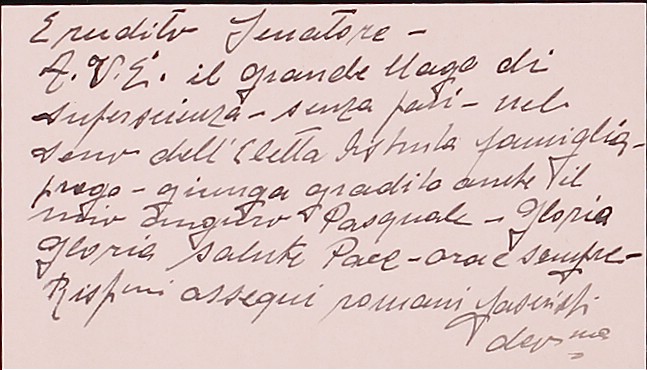 Erudito Senatore -
A.V.E. il grande Mago di
superscienza - senza pari - nel
seno dell'Eletta Distinta famiglia -
prego - giunga gradito anche il
mio augurio Pasquale - Gloria
Gloria Salute Pace - ora e sempre -
ossequi romani fascisti
dev.ma